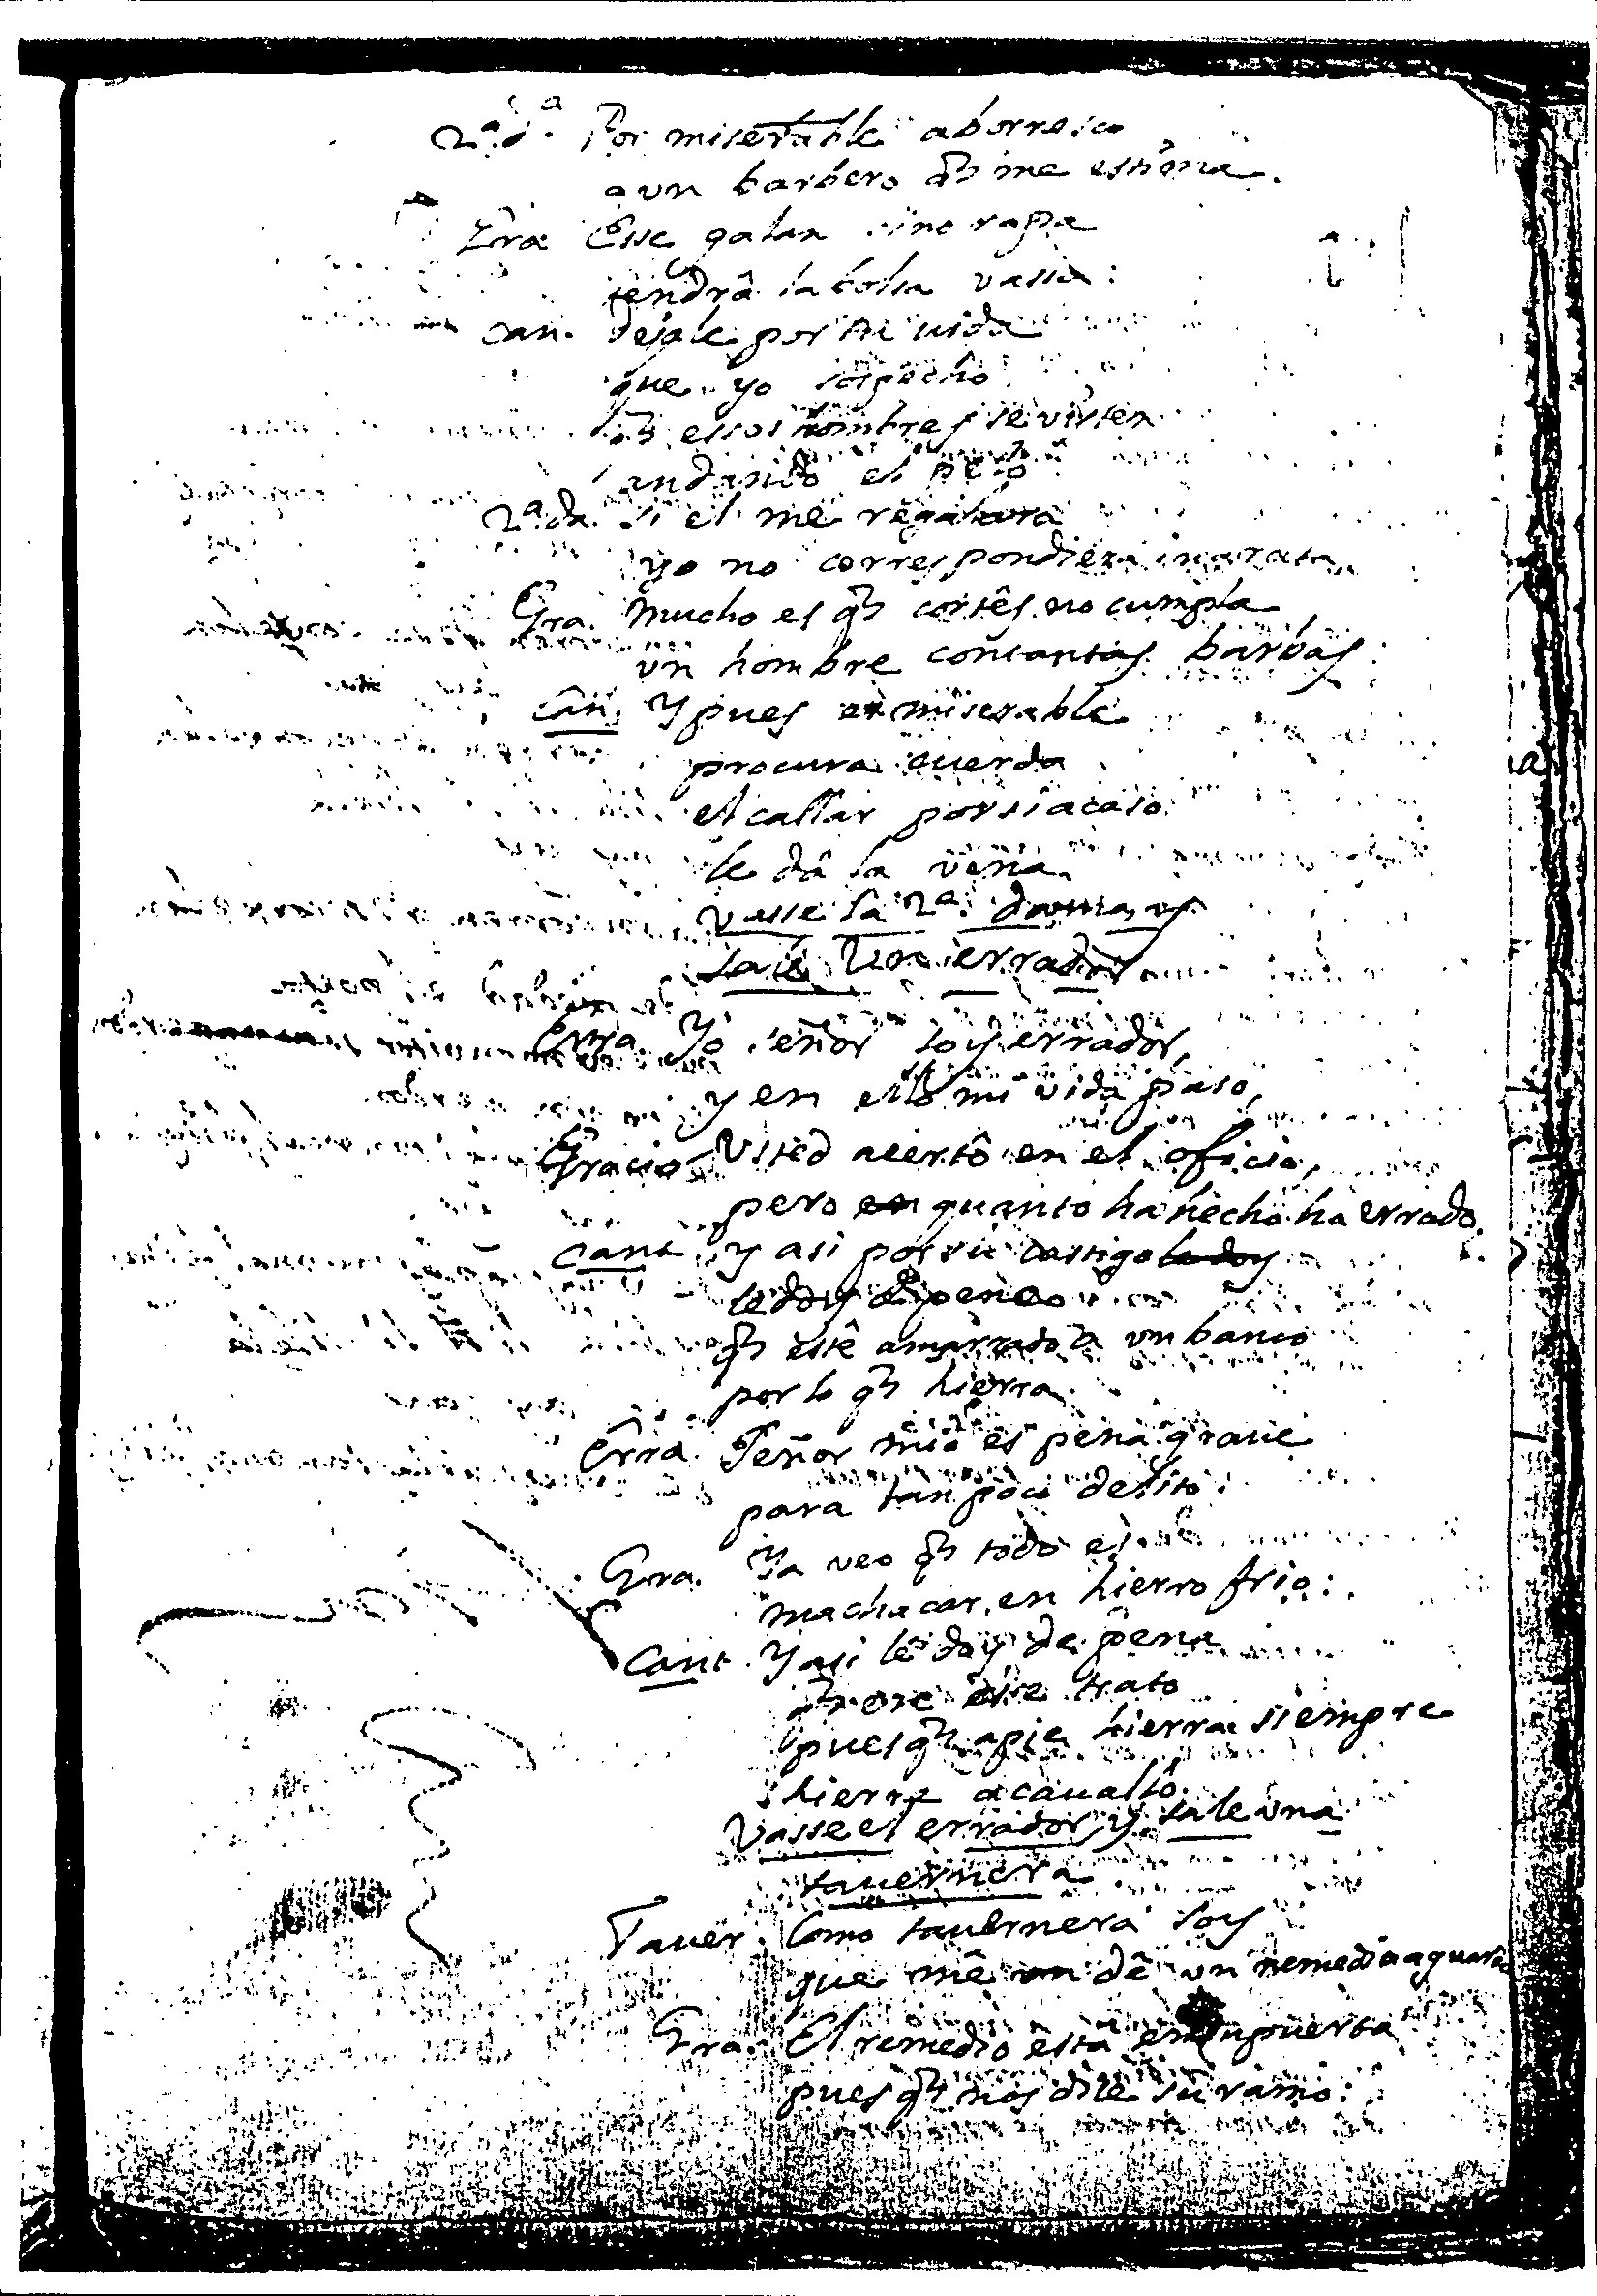 2ª dª. Por miserable aborresco
a vn barbero q̃ me estima.
Gra Esse galan sino rapa
tendrâ la bolsa vassia:
can. dejale por tu uida
que yo sospecho
q̃ essos hombres se visten
andando el pelo
2ª da. si el me regalara
yo no correspondiera ingrata
Gra. Mucho es q̃ cortês no cumpla
vn hombre con tantas barbas:
can. Y pues es miserable
procura cuerda
el callar por si acaso
le dâ la vena.
vasse la 2ª. dama, y
sale Un errador
Erra. Yo señor soy errador,
y en esto mi vida paso,
Gracio Vsted acertô en el oficio,
pero en quanto ha hecho ha errado.
Cant. y asi por su castigo le doy
le doy de pena
q̃ estê amarrado a vn banco
por lo q̃ hierra.
Erra. Señor mio es pena graue
para tan poco delito:
Gra. Ya veo q̃ todo es
machacar en hierro frio:
Cant. Y asi le doy de pena
esse trato
pues q̃ a pie hierra siempre
hierre a cauallo.
Vasse el errador, y sale vna
tauernera
Tauer. Como tauernera soy
que me dê vn remedio aguardo
Gra. El remedio esta en su puerta
pues q̃ nos dize su ramo: